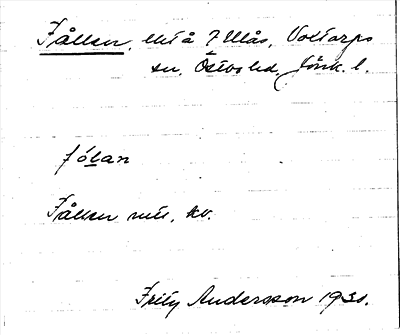 Fållen, utå 7 Mås, Voltorps
sn, Östbo hd, Jönk. l.
fólan
Fållen min, kv.
Frity Andersson 1930.